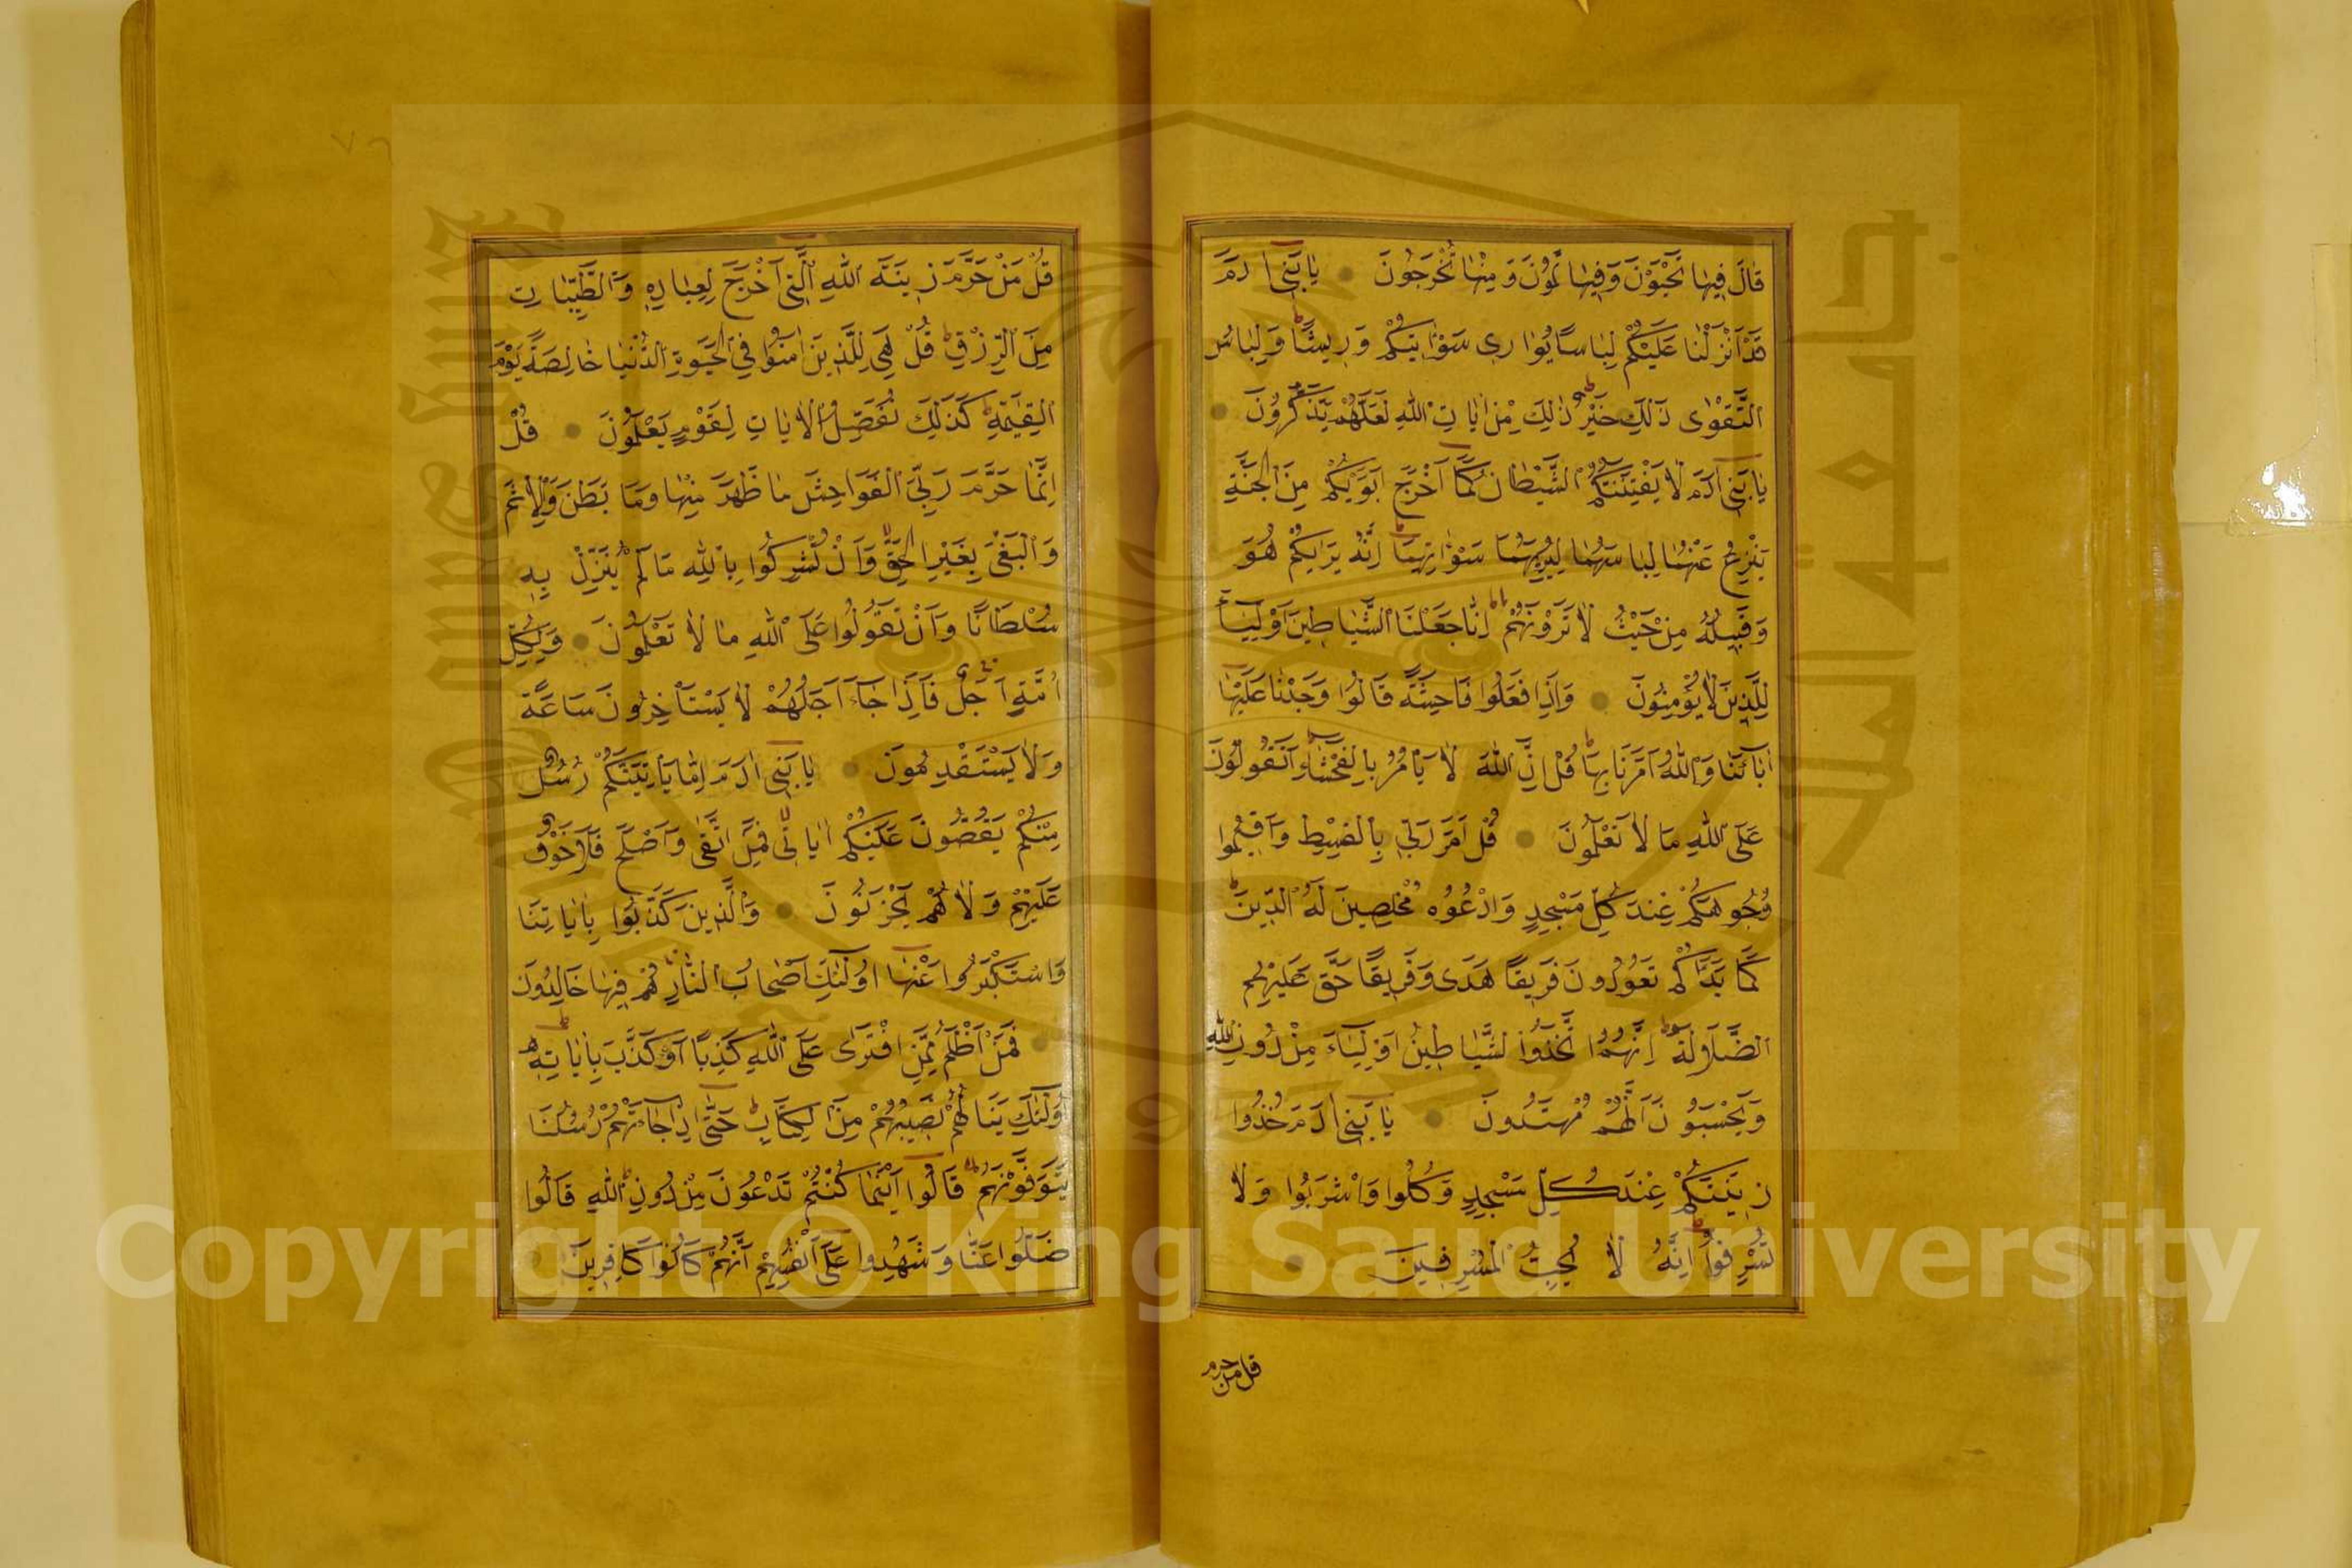 قَالَ فِيهَا تَحْيَوْنَ وَفِيهَا تَمُوتُونَ وَمِنْهَا تُخْرَجُونَ يَا بَنِي آدَمَ
قَدْ أَنْزَلْنَا عَلَيْكُمْ لِبَاسًا يُوَارِي سَوْآتِكُمْ وَرِيشًا وَلِبَاسُ
التَّقْوٰى ذٰلِكَ خَيْرٌ ذٰلِكَ مِنْ اٰيَاتِ اللّٰهِ لَعَلَّهُمْ يَذَّكَّرُونَ
يَا بَنِي اٰدَمَ لَا يَفْتِنَنَّكُمُ الشَّيْطَانُ كَمَا أَخْرَجَ أَبَوَيْكُمْ مِنَ الْجَنَّةِ
يَنْزِعُ عَنْهُمَا لِبَاسَهُمَا لِيُرِيَهُمَا سَوْاٰتِهِمَا اِنَّهُ يَرٰيكُمْ هُوَ
وَقَبِيلُهُ مِنْ حَيْثُ لَا تَرَوْنَهُمْ اِنَّا جَعَلْنَا الشَّيَاطِينَ أَوْلِيَآءَ
لِلَّذِينَ لَا يُؤْمِنُونَ وَاِذَا فَعَلُوا فَاحِشَةً قَالُوا وَجَدْنَا عَلَيْهَا
اٰبَآئَنَا وَاللّٰهُ اَمَرَنَا بِهَا قُلْ اِنَّ اللّٰهَ لَا يَأْمُرُ بِالْفَحْشَآءِ اَتَقُولُونَ
عَلَى اللّٰهِ مَا لَا تَعْلَمُونَ قُلْ اَمَرَ رَبِّي بِالْقِسْطِ وَاَقِيمُوا
وُجُوهَكُمْ عِنْدَ كُلِّ مَسْجِدٍ وَادْعُوهُ مُخْلِصِينَ لَهُ الدِّينَ
كَمَا بَدَاَكُمْ تَعُودُونَ فَرِيقًا هَدٰى وَفَرِيقًا حَقَّ عَلَيْهِمُ
الضَّلَالَةُ اِنَّهُمُ اتَّخَذُوا الشَّيَاطِينَ اَوْلِيَآءَ مِنْ دُونِ اللّٰهِ
وَيَحْسَبُونَ اَنَّهُمْ مُهْتَدُونَ يَا بَنِي اٰدَمَ خُذُوا
زِينَتَكُمْ عِنْدَ كُلِّ مَسْجِدٍ وَكُلُوا وَاشْرَبُوا وَلَا
تُسْرِفُوا اِنَّهُ لَا يُحِبُّ الْمُسْرِفِينَ
قل من حرم
قُلْ مَنْ حَرَّمَ زِينَةَ اللّٰهِ الَّتِي اَخْرَجَ لِعِبَادِهِ وَالطَّيِّبَاتِ
مِنَ الرِّزْقِ قُلْ هِيَ لِلَّذِينَ اٰمَنُوا فِي الْحَيٰوةِ الدُّنْيَا خَالِصَةً يَوْمَ
الْقِيٰمَةِ كَذٰلِكَ نُفَصِّلُ الْاٰيَاتِ لِقَوْمٍ يَعْلَمُونَ قُلْ
اِنَّمَا حَرَّمَ رَبِّيَ الْفَوَاحِشَ مَا ظَهَرَ مِنْهَا وَمَا بَطَنَ وَالْاِثْمَ
وَالْبَغْيَ بِغَيْرِ الْحَقِّ وَاَنْ تُشْرِكُوا بِاللّٰهِ مَا لَمْ يُنَزِّلْ بِهِ
سُلْطَانًا وَاَنْ تَقُولُوا عَلَى اللّٰهِ مَا لَا تَعْلَمُونَ وَلِكُلِّ
اُمَّةٍ اَجَلٌ فَاِذَا جَآءَ اَجَلُهُمْ لَا يَسْتَأْخِرُونَ سَاعَةً
وَلَا يَسْتَقْدِمُونَ يَا بَنِي اٰدَمَ اِمَّا يَأْتِيَنَّكُمْ رُسُلٌ
مِنْكُمْ يَقُصُّونَ عَلَيْكُمْ اٰيَاتِي فَمَنِ اتَّقٰى وَاَصْلَحَ فَلَا خَوْفٌ
عَلَيْهِمْ وَلَا هُمْ يَحْزَنُونَ وَالَّذِينَ كَذَّبُوا بِاٰيَاتِنَا
وَاسْتَكْبَرُوا عَنْهَا اُولٰئِكَ اَصْحَابُ النَّارِ هُمْ فِيهَا خَالِدُونَ
فَمَنْ اَظْلَمُ مِمَّنِ افْتَرٰى عَلَى اللّٰهِ كَذِبًا اَوْ كَذَّبَ بِاٰيَاتِهِ
اُولٰئِكَ يَنَالُهُمْ نَصِيبُهُمْ مِنَ الْكِتَابِ حَتّٰى اِذَا جَآءَتْهُمْ رُسُلُنَا
يَتَوَفَّوْنَهُمْ قَالُوا اَيْنَمَا كُنْتُمْ تَدْعُونَ مِنْ دُونِ اللّٰهِ قَالُوا
ضَلُّوا عَنَّا وَشَهِدُوا عَلٰى اَنْفُسِهِمْ اَنَّهُمْ كَانُوا كَافِرِينَ
Copyright © King Saud University